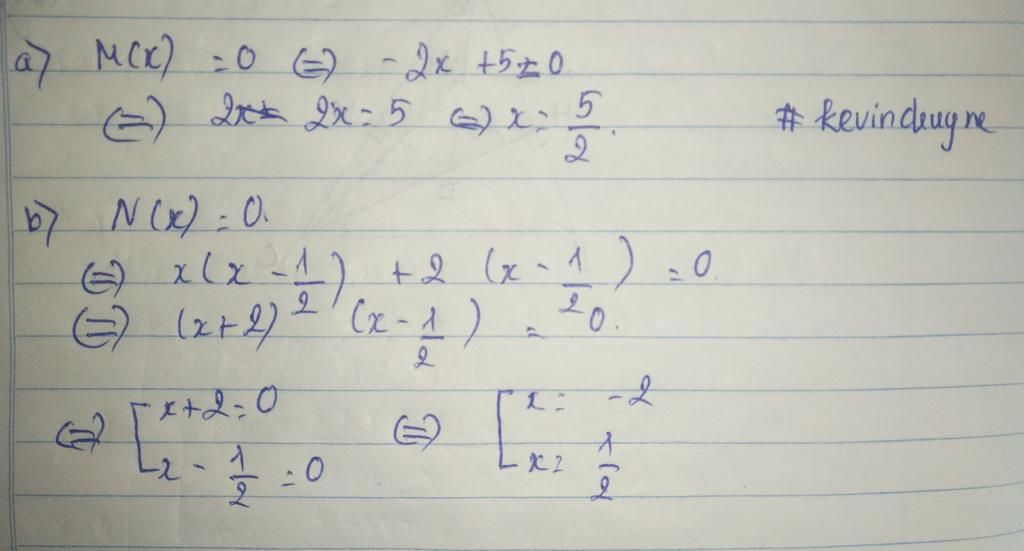 a) M(x) = 0 ⇔ -2x + 5 = 0
⇔ 2x = 2x = 5 ⇔ x = 5/2. # kevindeugne
b) N(x) = 0.
⇔ x(x - 1/2) + 2 (x - 1/2) = 0.
⇔ (x+2) (x - 1/2) = 0.
⇔ [ x+2=0 ⇔ [ x = -2
x - 1/2 = 0 x = 1/2